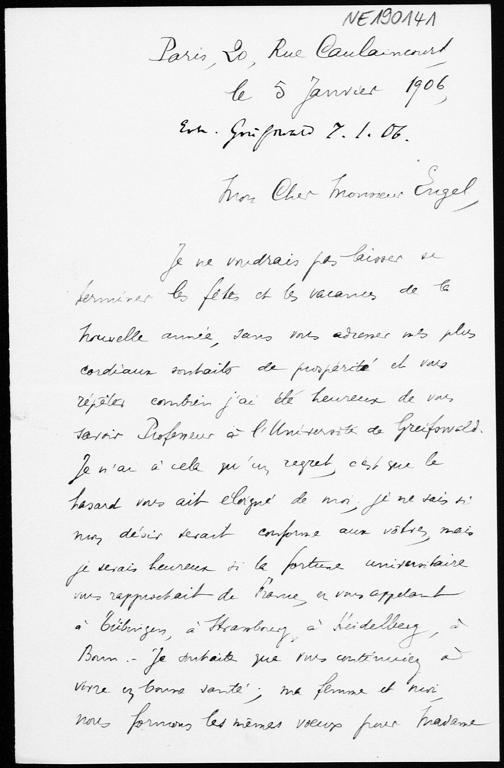 NE190141
Paris, 20, Rue Caulaincourt,
le 5 Janvier 1906,
Erh. Greifswald 7.1.06.
Mon Cher Monsieur Engel,
Je ne voudrais pas laisser se
terminer les fêtes et les vacances de la
Nouvelle année, sans vous adresser mes plus
cordiaux souhaits de prospérité et vous
répéter combien j'ai été heureux de vous
savoir Professeur à l'Université de Greifswald.
Je n'ai à cela qu'un regret, c'est que le
hasard vous ait éloigné de moi, je ne sais si
mon désir serait conforme aux vôtres, mais
je serais heureux si la fortune universitaire
vous rapprochait de France, en vous appelant
à Tübingen, à Strasbourg, à Heidelberg, à
Bonn. - Je souhaite que vous continuiez à
vivre en bonne santé; ma femme et moi,
nous formons les mêmes voeux pour Madame